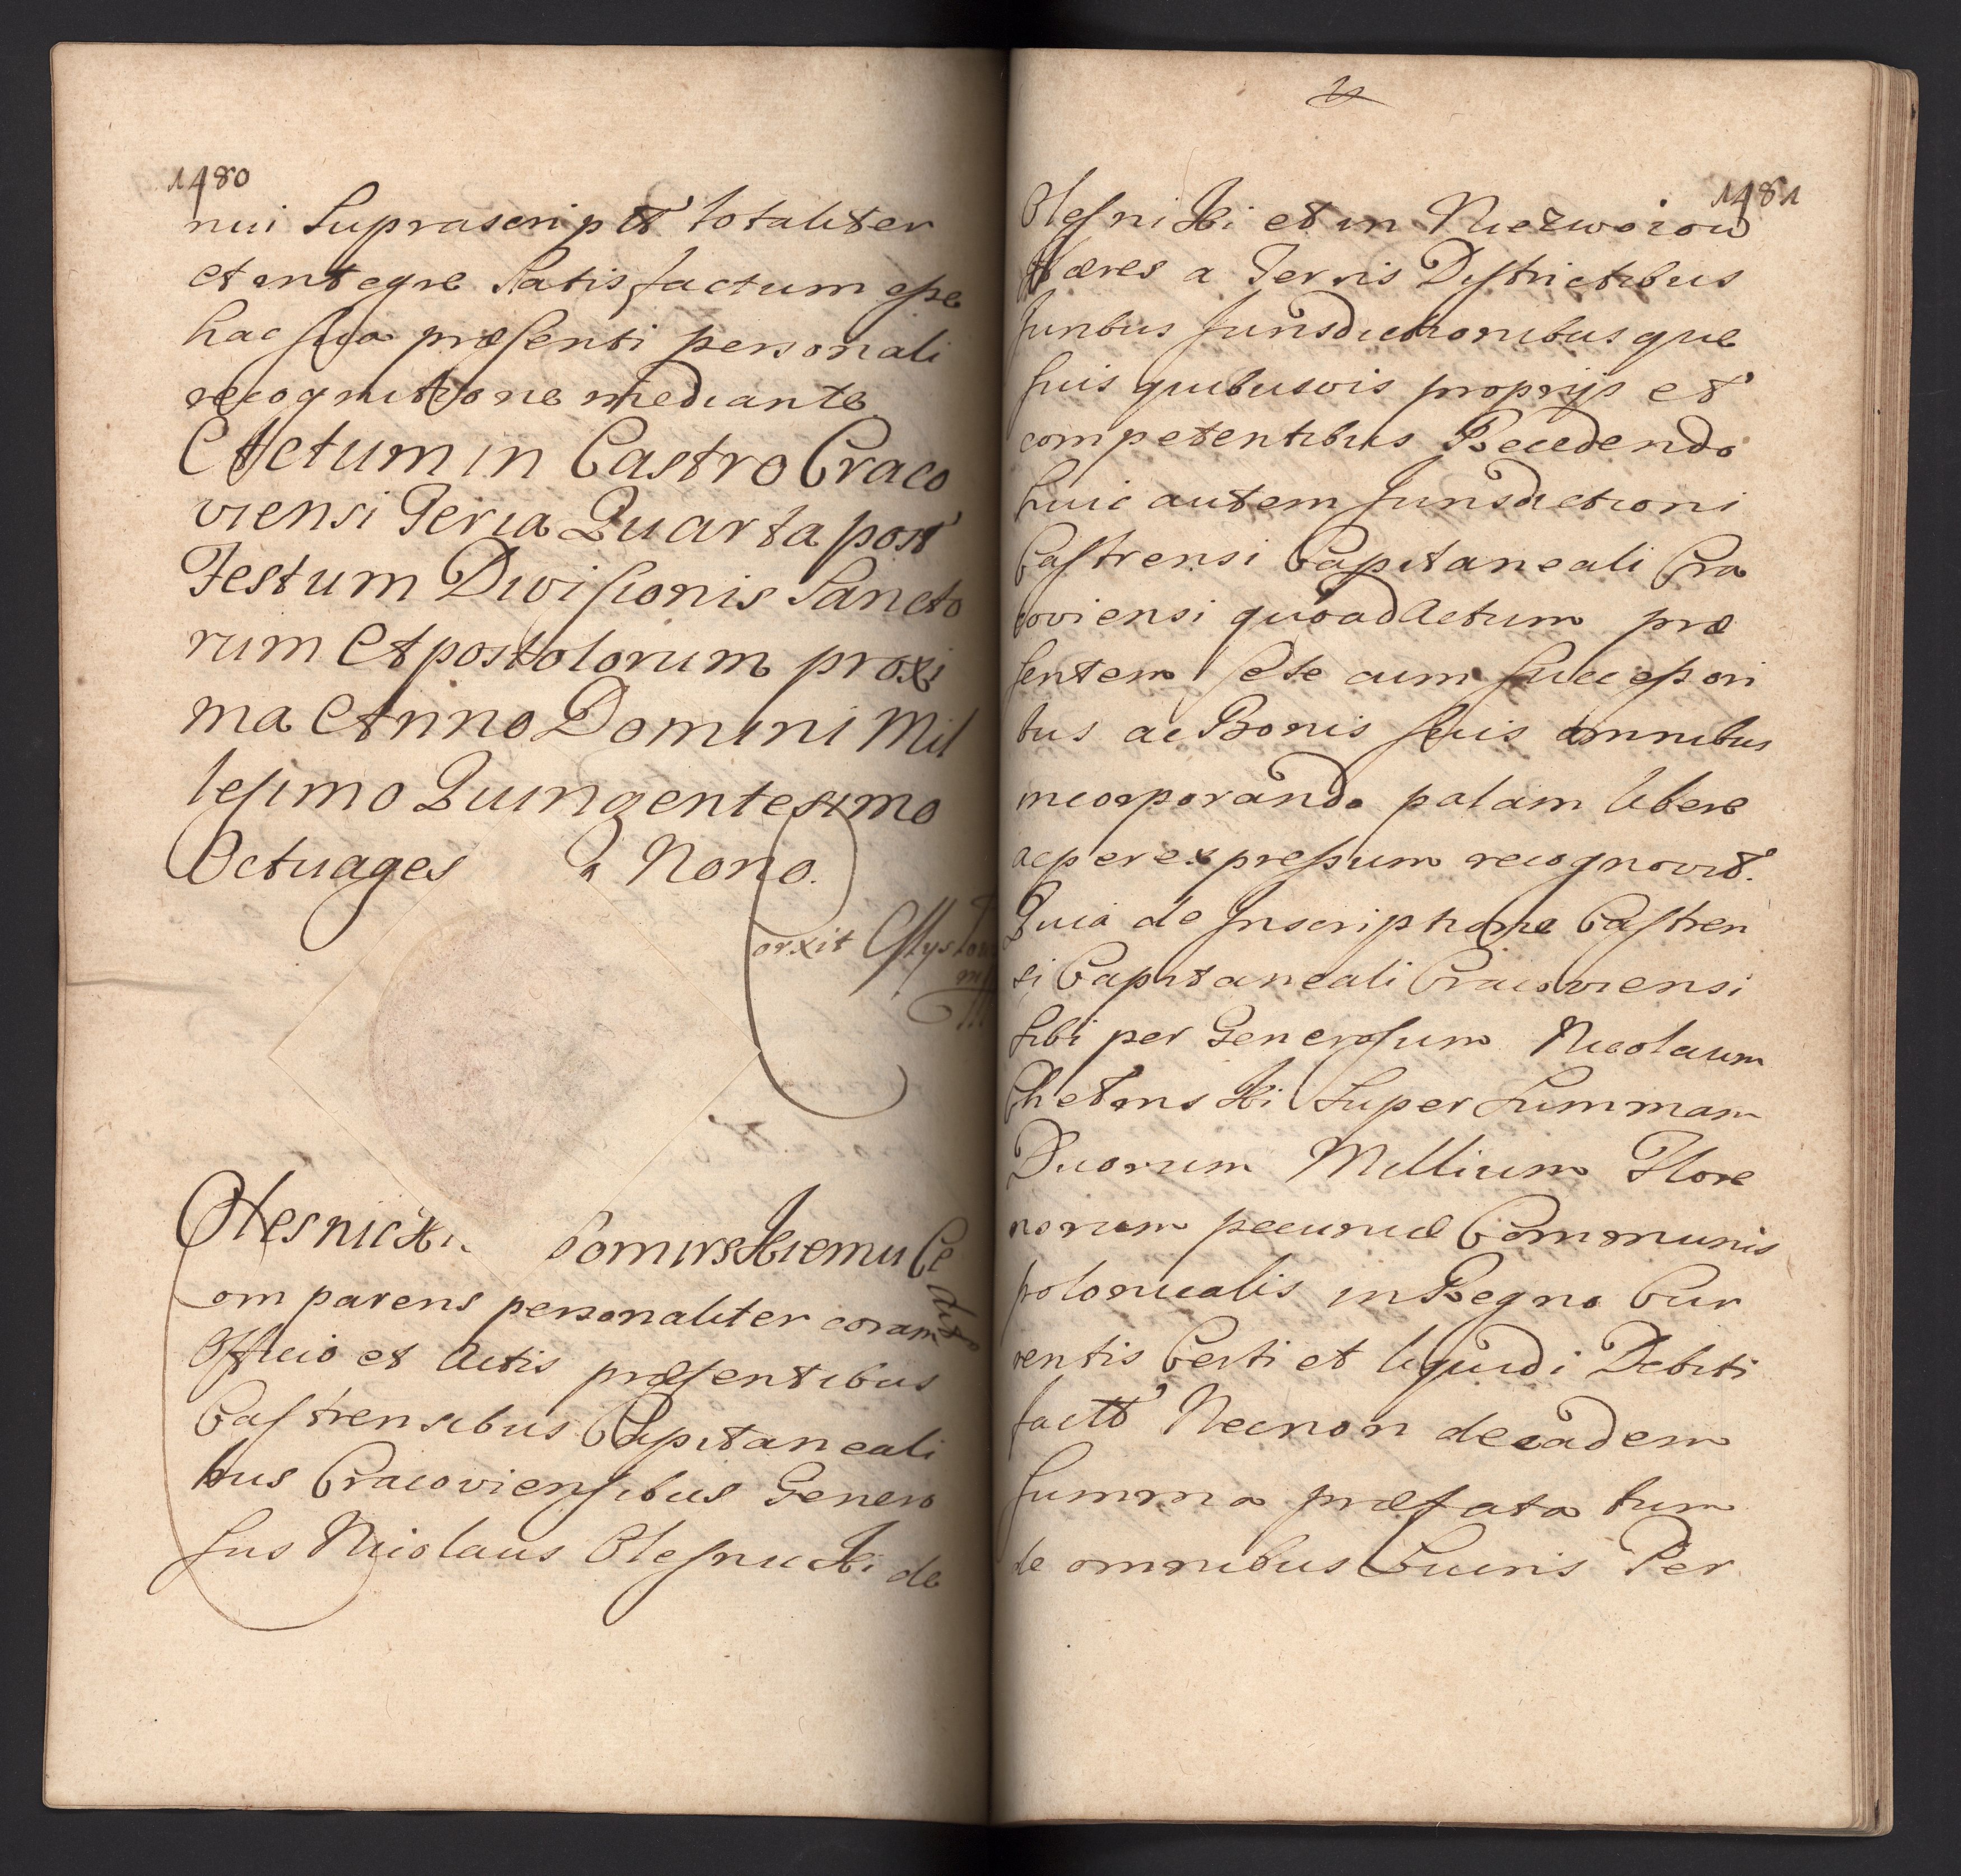 1480
nui Suprascriptt totaliter
et integre Satisfactum esse
hac sua præsenti personali
recognitione mediante
Actum in Castro Craco
viensi Feria Quarta post
Festum Divisionis Sancto
rum Apostolorum proxi
ma Anno Domini Mil
lesimo Quingentesimo
Octuages Nono.
Corxit
Olesnicki Komirskiemu Ce
dit
Comparens personaliter coram
Officio et Actis præsentibus
Castrensibus Capitaneali
bus Cracoviensibus Genero
sus Nicolaus Olesnicki de
1481
Olesniki et in Niezwoiow
Hæres a Terris Districtibus
Juribus Jurisdictionibusque
suis quibusvis proprijs et
competentibus Recedendo
huic autem Jurisdictioni
Castrensi Capitaneali Cra
coviensi quoad Actum præ
sentem sese cum successori
bus ac Bonis suis omnibus
incorporando palam libere
ac per expressum recognovit.
Quia de Inscriptione Castren
si Capitaneali Cracoviensi
sibi per Generosum Nicolaum
Super Summam
Duorum Millium Flore
norum pecuniæ Communis
polonicalis in Regno Cur
rentis Certi et liquidi Debiti
factt Necnon de eadem
summa præfata tum
de omnibus Lucris Per